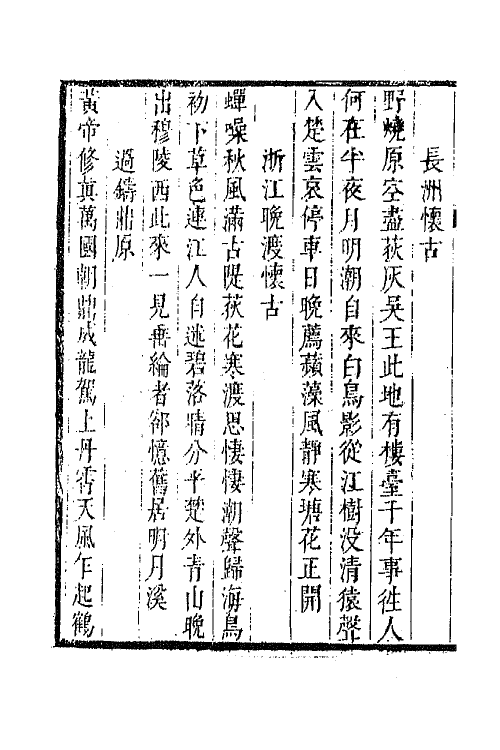 長洲懷古
野燒原空盡荻灰吳王此地有樓臺千年事徃人
何在半夜月明潮自來白鳥影從江樹没清猿聲
入楚雲哀停車日晚薦蘋藻風靜寒塘花正開
浙江晚渡懷古
蟬噪秋風滿古隄荻花寒渡思悽悽潮聲歸海鳥
初下草色連江人自迷碧落晴分平楚外青山晚
出穆陵西此來一見垂綸者卻憶舊居明月溪
過鑄鼎原
黃帝修真萬國朝鼎成龍駕上丹霄天風乍起鶴